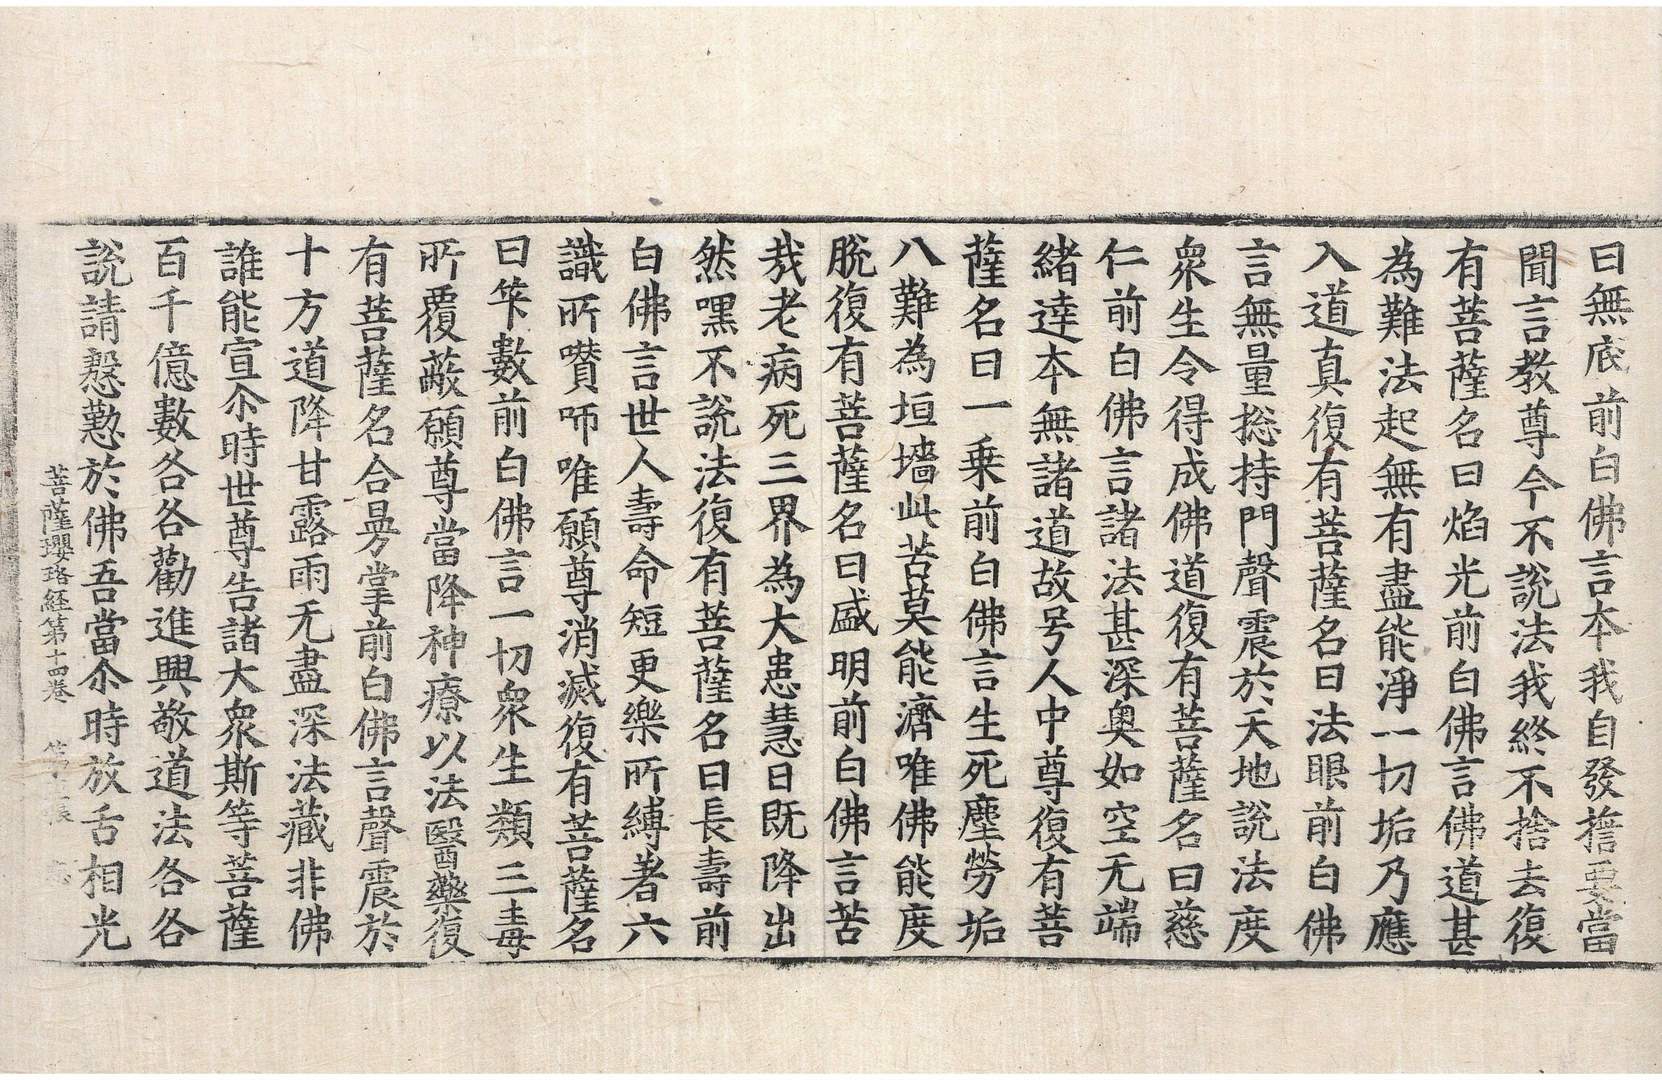 曰無底前白佛言本我自發擔要當
聞言教尊今不說法我終不捨去復
有菩薩名曰焰光前白佛言佛道甚
為難法起無有盡能淨一切垢乃應
入道真復有菩薩名曰法眼前白佛
言無量揔持門聲震於天地說法度
衆生令得成佛道復有菩薩名曰慈
仁前白佛言諸法甚深奧如空无端
緒達本無諸道故号人中尊復有菩
薩名曰一乗前白佛言生死塵勞垢
八難為垣墻此苦莫能濟唯佛能度
脫復有菩薩名曰盛明前白佛言苦
哉老病死三界為大患慧日既降出
然嘿不說法復有菩薩名曰長壽前
白佛言世人壽命短更樂所縛著六
識所嚌㗱唯願尊消滅復有菩薩名
曰笇數前白佛言一切衆生類三毒
所覆蔽願尊當降神療以法醫藥復
有菩薩名合曇掌前白佛言聲震於
十方道降甘露雨无盡深法藏非佛
誰能宣尒時世尊告諸大衆斯等菩薩
百千億數各各勸進興敬道法各各
說請慇懃於佛吾當尒時放舌相光
菩薩瓔珞経第十四卷 第 張